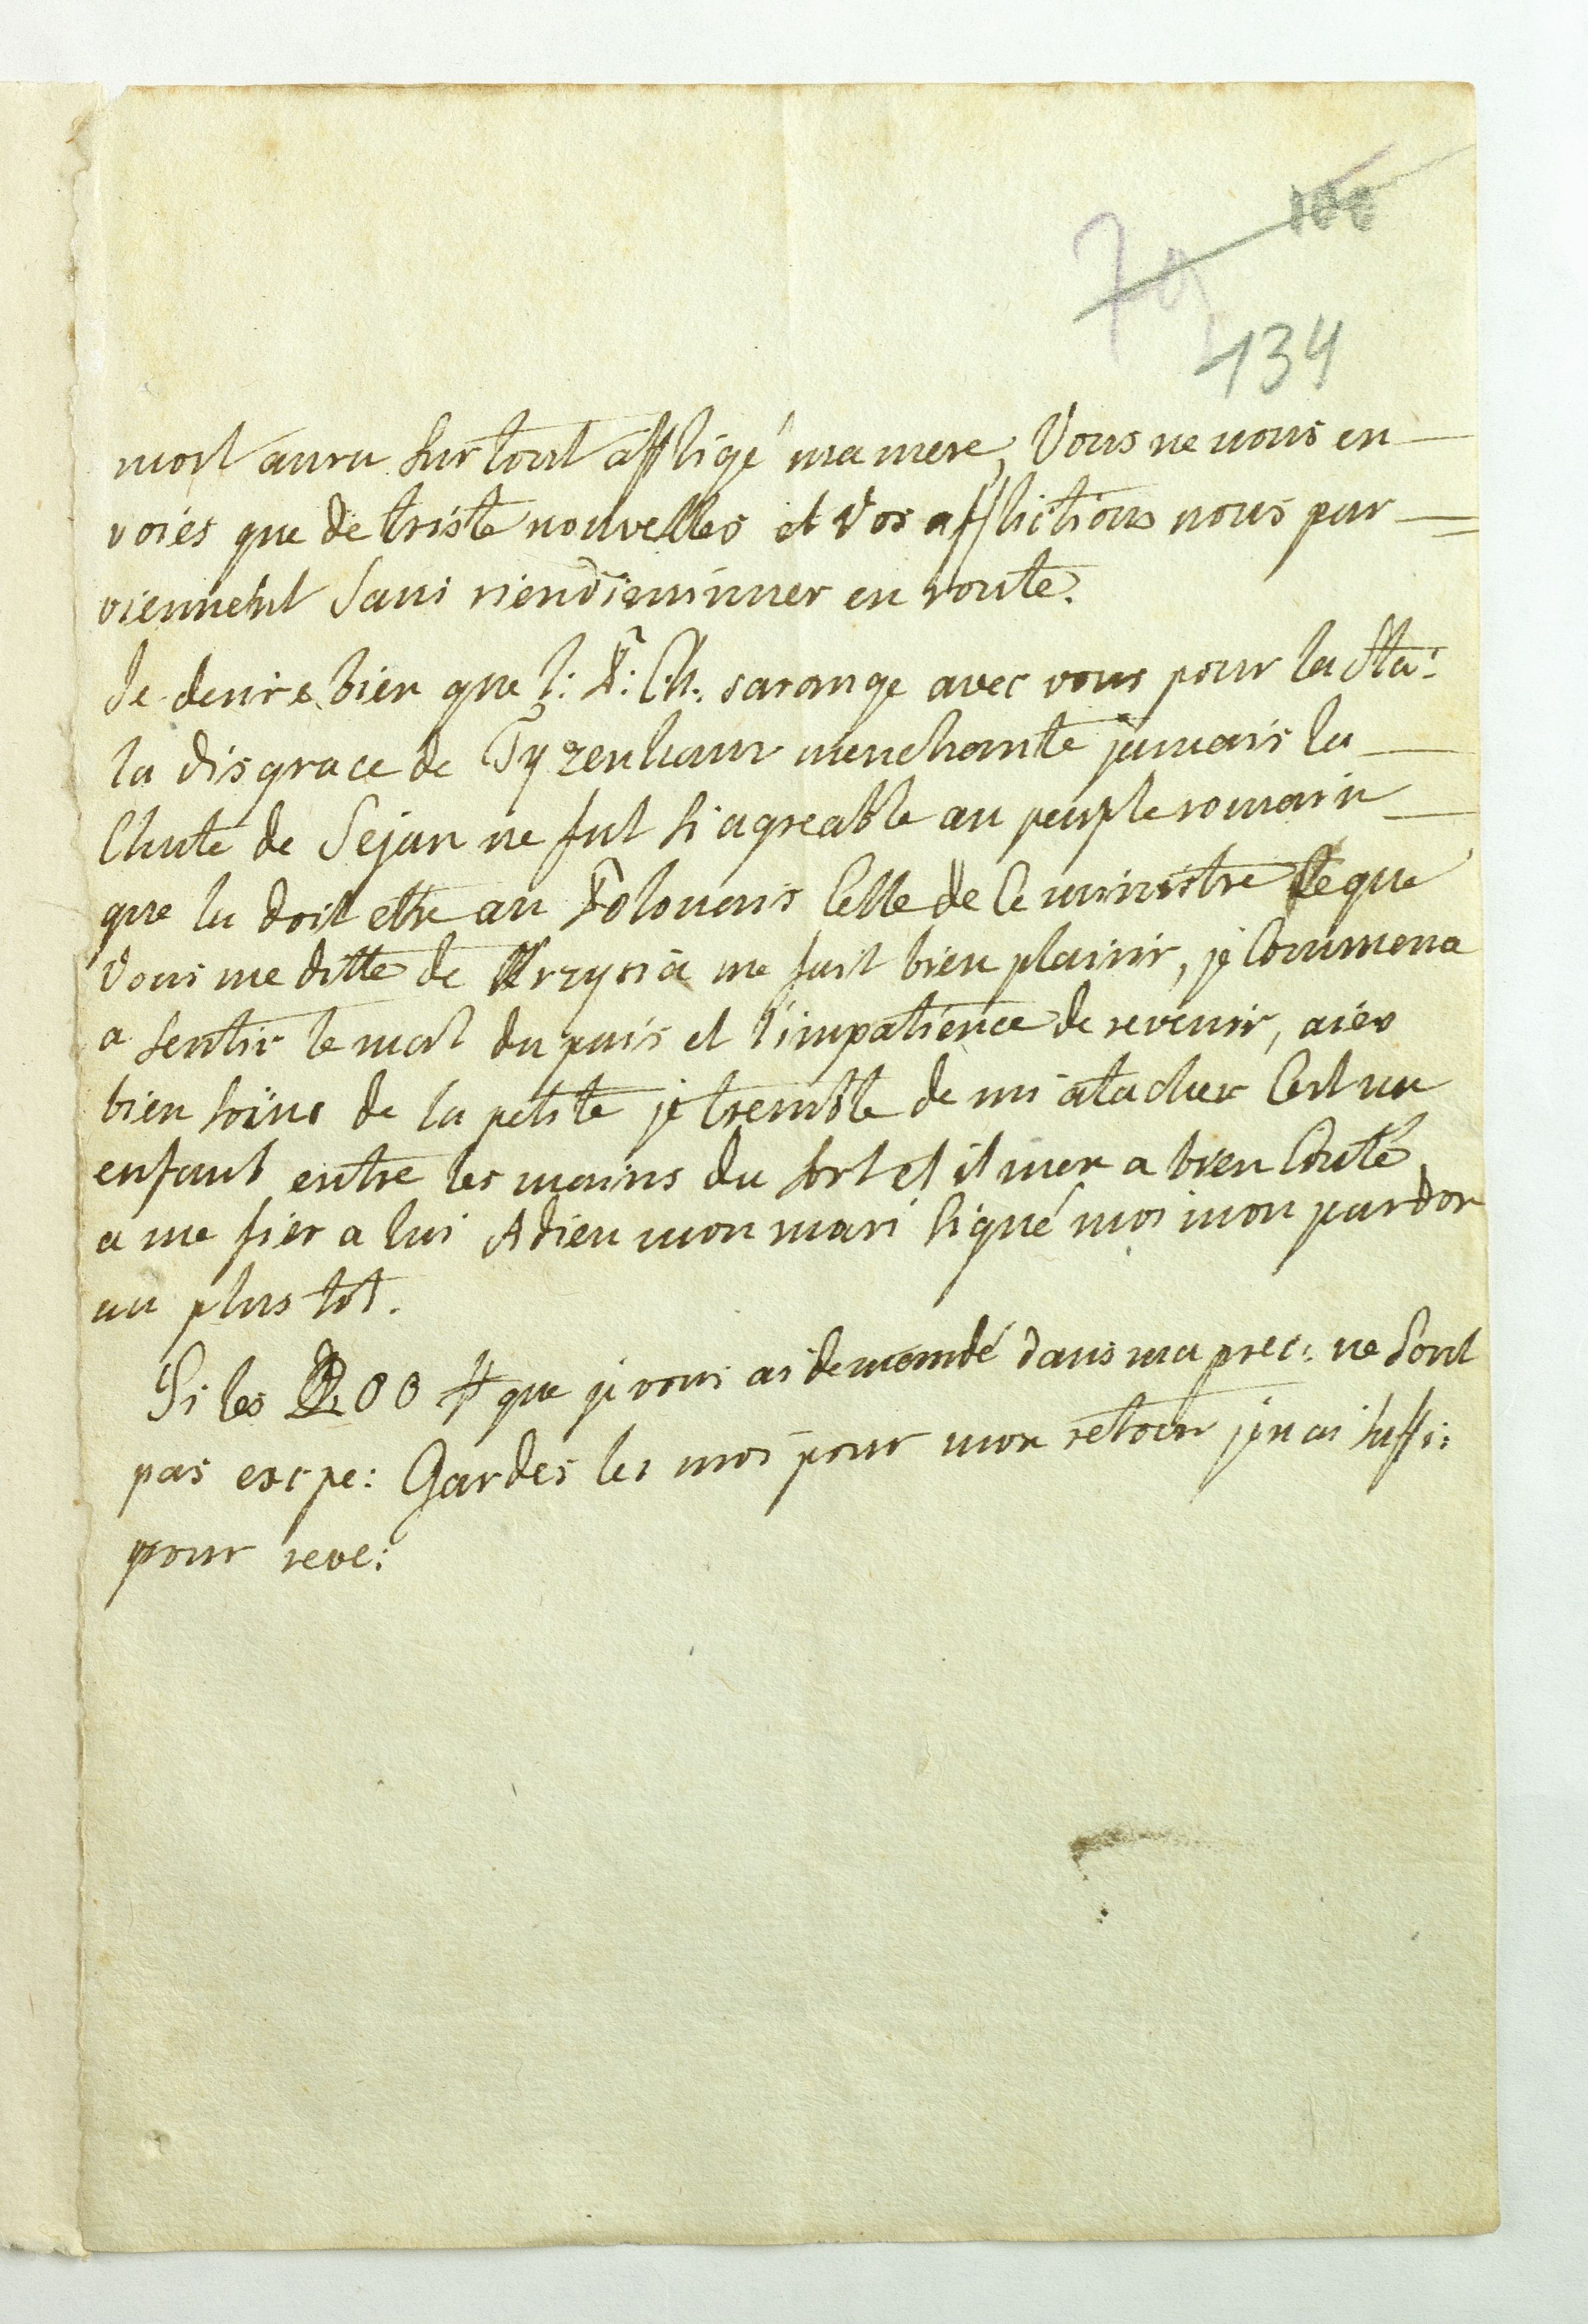 100
79
134
mort aura surtout affligé ma mere, Vous ne nous en
voiés que de triste nouvelles et Vos afflictions nous par
viennent sans rien diminuer en route.
Je desire bien que l: P: Ch. sarange avec vous pour la Sta:
la disgrace de Tyzenhaur menchante jamais la
Chute de Sejan ne fut si agreable au peuple romain
que la doit etre au Polonois Celle de Ce ministre Ce que
Vous me ditte de Krzysia me fait bien plaisir, je Commence
a sentir le mal du païs et l'impatience de revenir, aiés
bien soins de la petite je tremble de mi atacher Cest un
enfant entre les mains du sort et il men a bien Couté
a me fier a lui Adieu mon mari signé moi mon pardon
au plus tot.
Si les 200 # que je vous ai demandé dans ma prec: ne sont
pas exspe: Gardes les moi pour mon retour jen ai suffi:
pour reve: